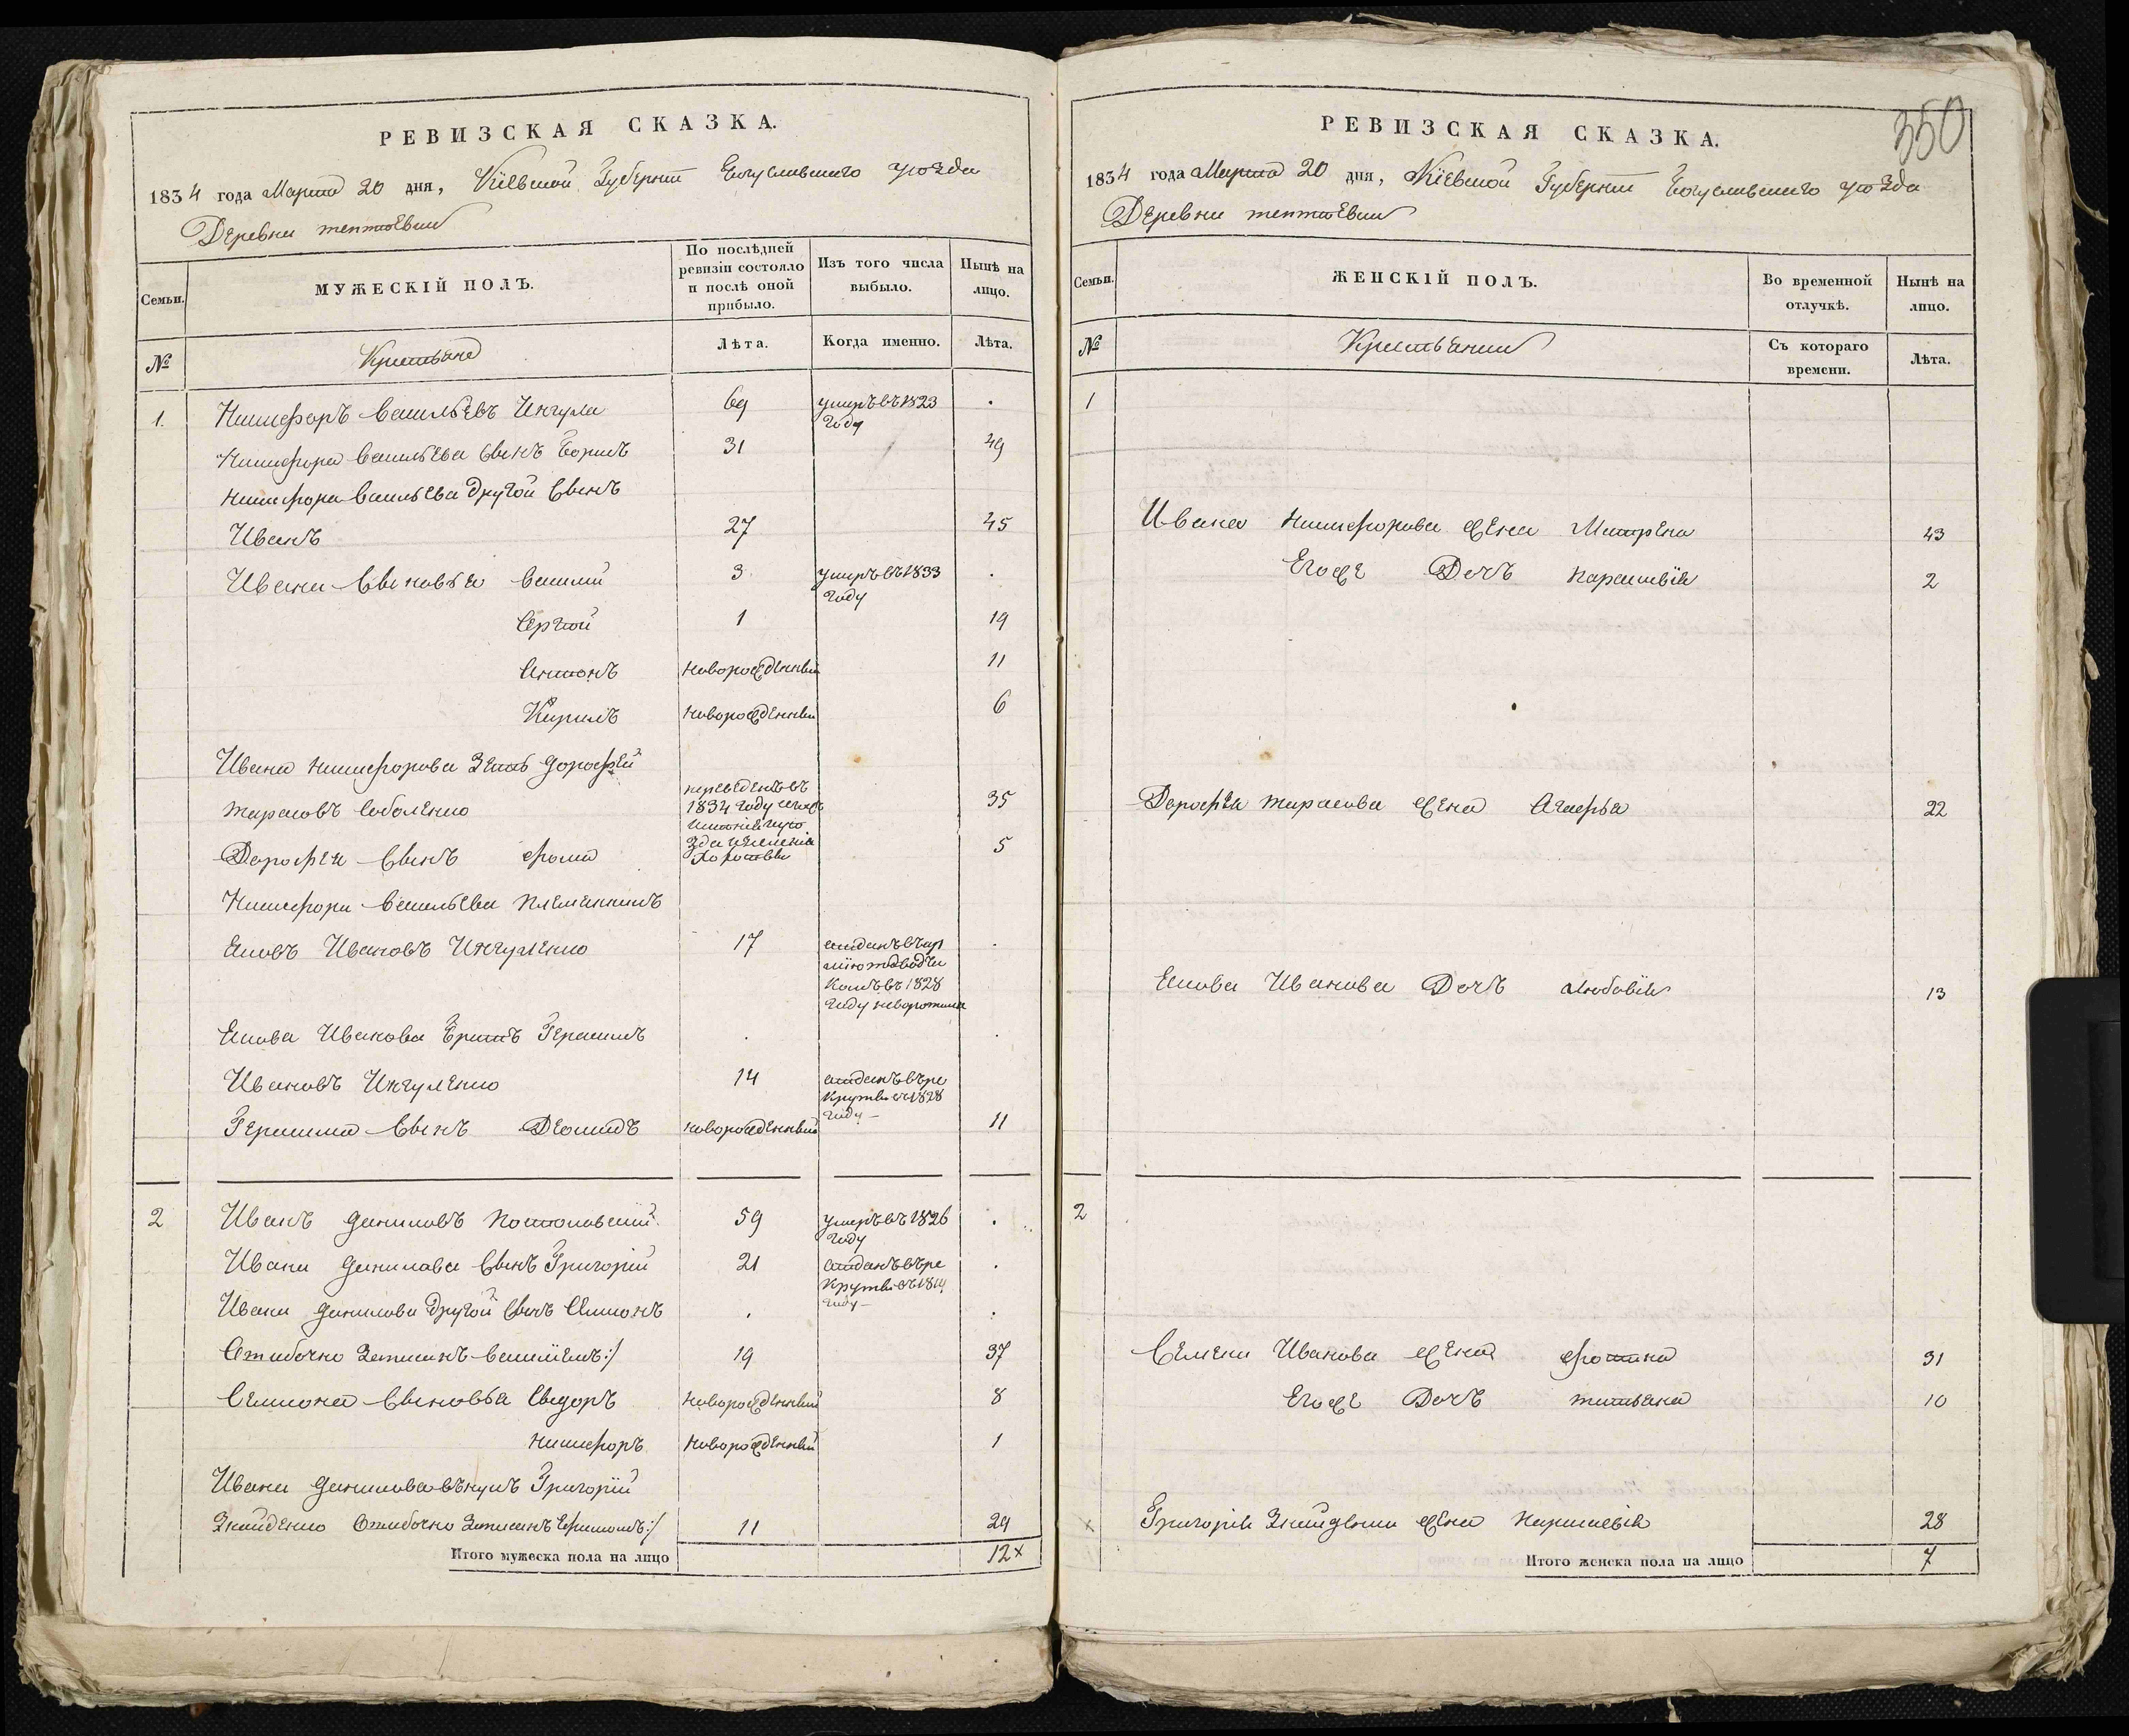 РЕВИЗСКАЯ СКАЗКА.
1834 года Марта 20 дня, Кіевской Губерніи Богуславского уѣзда
Деревни Тептѣевки
Семьи.
МУЖЕСКІЙ ПОЛЪ.
По послѣдней ревизіи состояло и послѣ оной прибыло.
Изъ того числа выбыло.
Нынѣ на лицо.
№
Крестьяне
Лѣта.
Когда именно.
Лѣта.
1. Никифоръ Васильевъ Ингула 69 умеръ въ 1823 году .
Никифора Васильева Сынъ Борисъ 31 49
Никифора Васильева другой Сынъ
Иванъ 27 45
Ивана Сыновья Василий 3 умеръ въ 1833 году .
Сергѣй 1 19
Антонъ новорожденный 11
Кирилъ новорожденный 6
Ивана Никифорова Зять Дорофей
Тарасовъ Соболенко переведенъ въ 1834 году 35
Дорофея Сынъ Фома 5
Никифора Васильева племянникъ
Яковъ Ивановъ Ингуленко 17 отданъ въ 1828 году .
Якова Иванова Братъ Герасимъ . .
Ивановъ Ингуленко 14 отданъ въ рекруты въ 1828 году
Герасима Сынъ Деомидъ новорожденный 11
2 Иванъ Даниловъ 59 умеръ въ 1826 году .
Ивана Данилова Сынъ Григорій 21 отданъ въ рекруты въ 1819 году .
Ивана Данилова другой Сынъ Симонъ . .
Ошибочно Записанъ Василіемъ:/ 19 37
Симона Сыновья Сидоръ новорожденный 8
Никифоръ новорожденный 1
Ивана Данилова внукъ Григорій
Знайденко Ошибочно Записанъ Ефимомъ:/ 11 29
Итого мужеска пола на лицо 12×
350
РЕВИЗСКАЯ СКАЗКА.
1834 года Марта 20 дня, Кіевской Губерніи Богуславского уѣзда
Деревни Тептѣевки
Семьи.
ЖЕНСКІЙ ПОЛЪ.
Во временной отлучкѣ.
Нынѣ на лицо.
№
Крестьянки
Съ котораго времени.
Лѣта.
1
Ивана Никифорова жена Матрена 43
Егоже Дочъ Параскевія 2
Дорофея Тарасова жена Агафья 22
Якова Иванова Дочъ Любовія 13
2
Семена Иванова жена Фотина 31
Егоже Дочъ Татьяна 10
Григорія Знайденка жена Параскевія 28
Итого женска пола на лицо 7